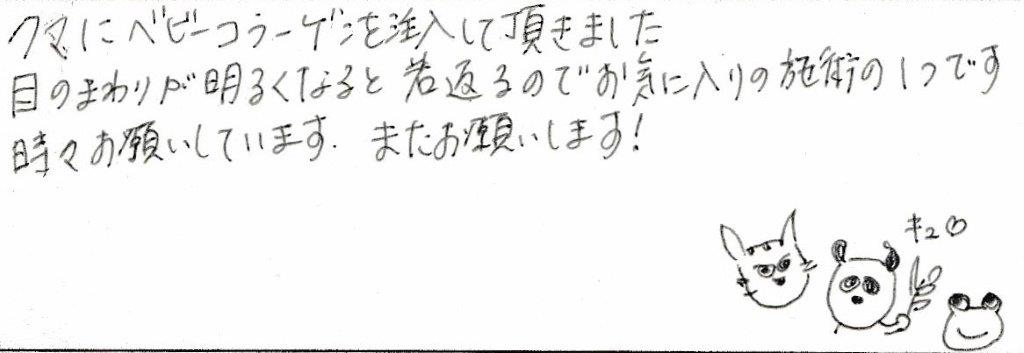 クマにベビーコラーゲンを注入して頂きました
目のまわりが明るくなると若返るのでお気に入りの施術の1つです
時々お願いしています. またお願いします!
キュ♡